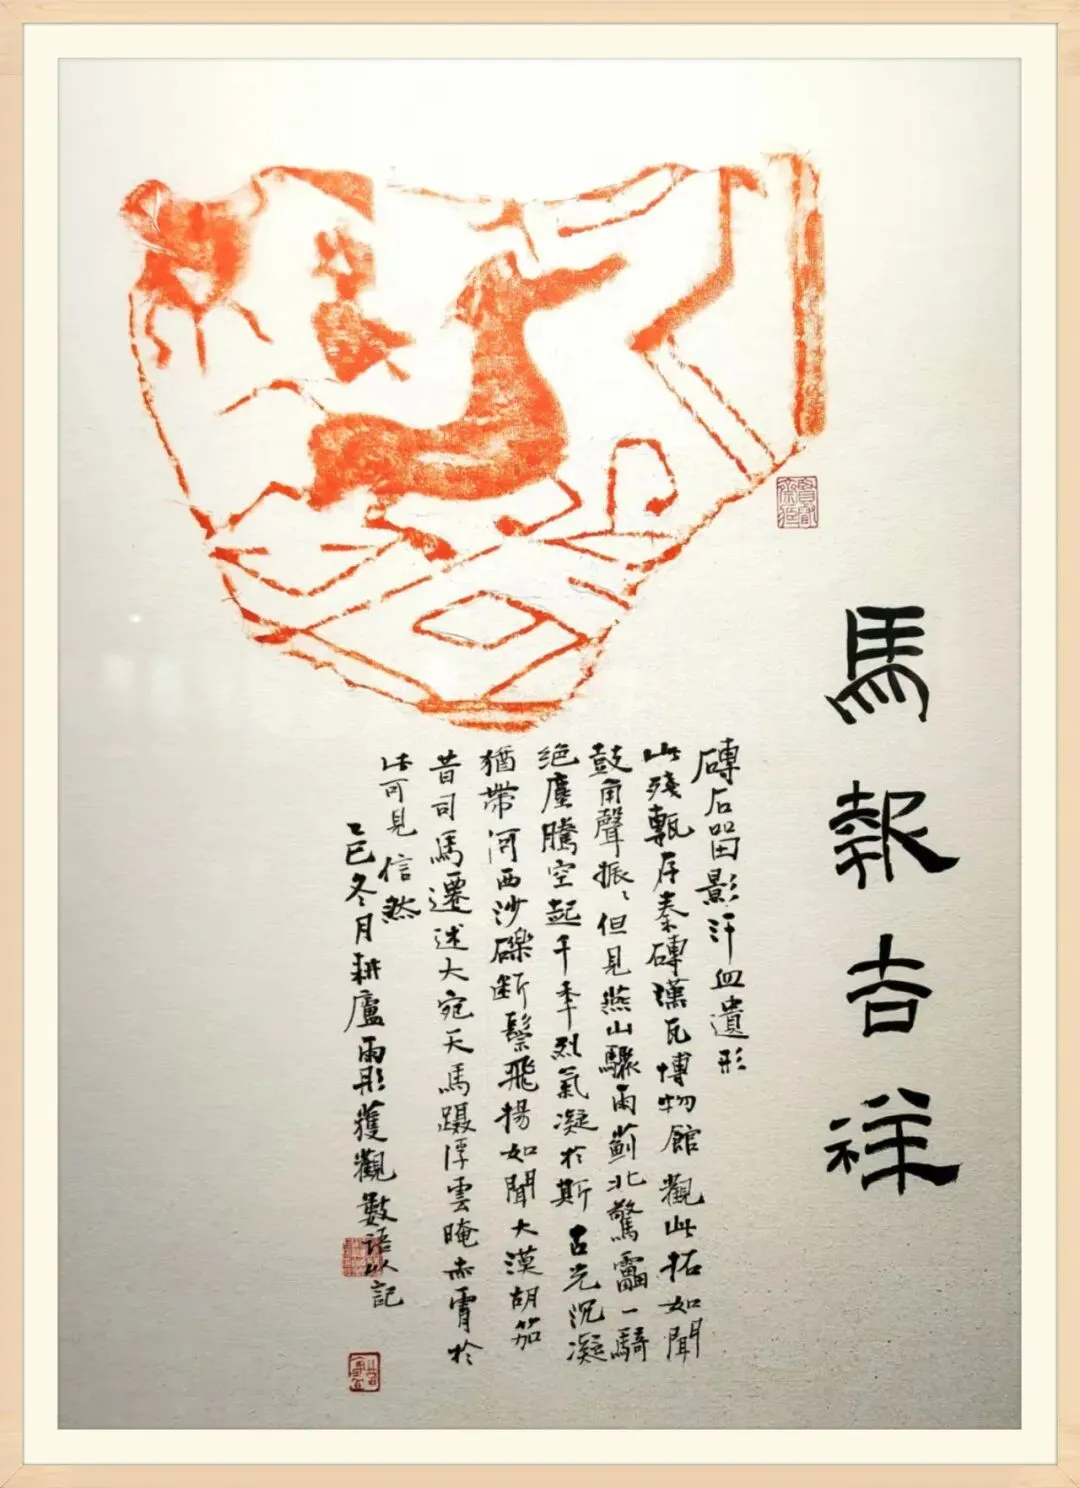 馬報吉祥
磚石留影汗血遺形
此殘甎存秦磚漢瓦博物館觀此拓如聞
鼓角聲振、但見燕山驟雨薊北驚雷一騎
絕塵騰空起千年烈氣凝於斯古光沉凝
猶帶河西沙礫断鬃飛揚如聞大漠胡笳
昔司馬遷述大宛天馬蹑浮雲晻赤霄於
此可見信然
乙巳冬月耕廬雨彤獲觀數語以記